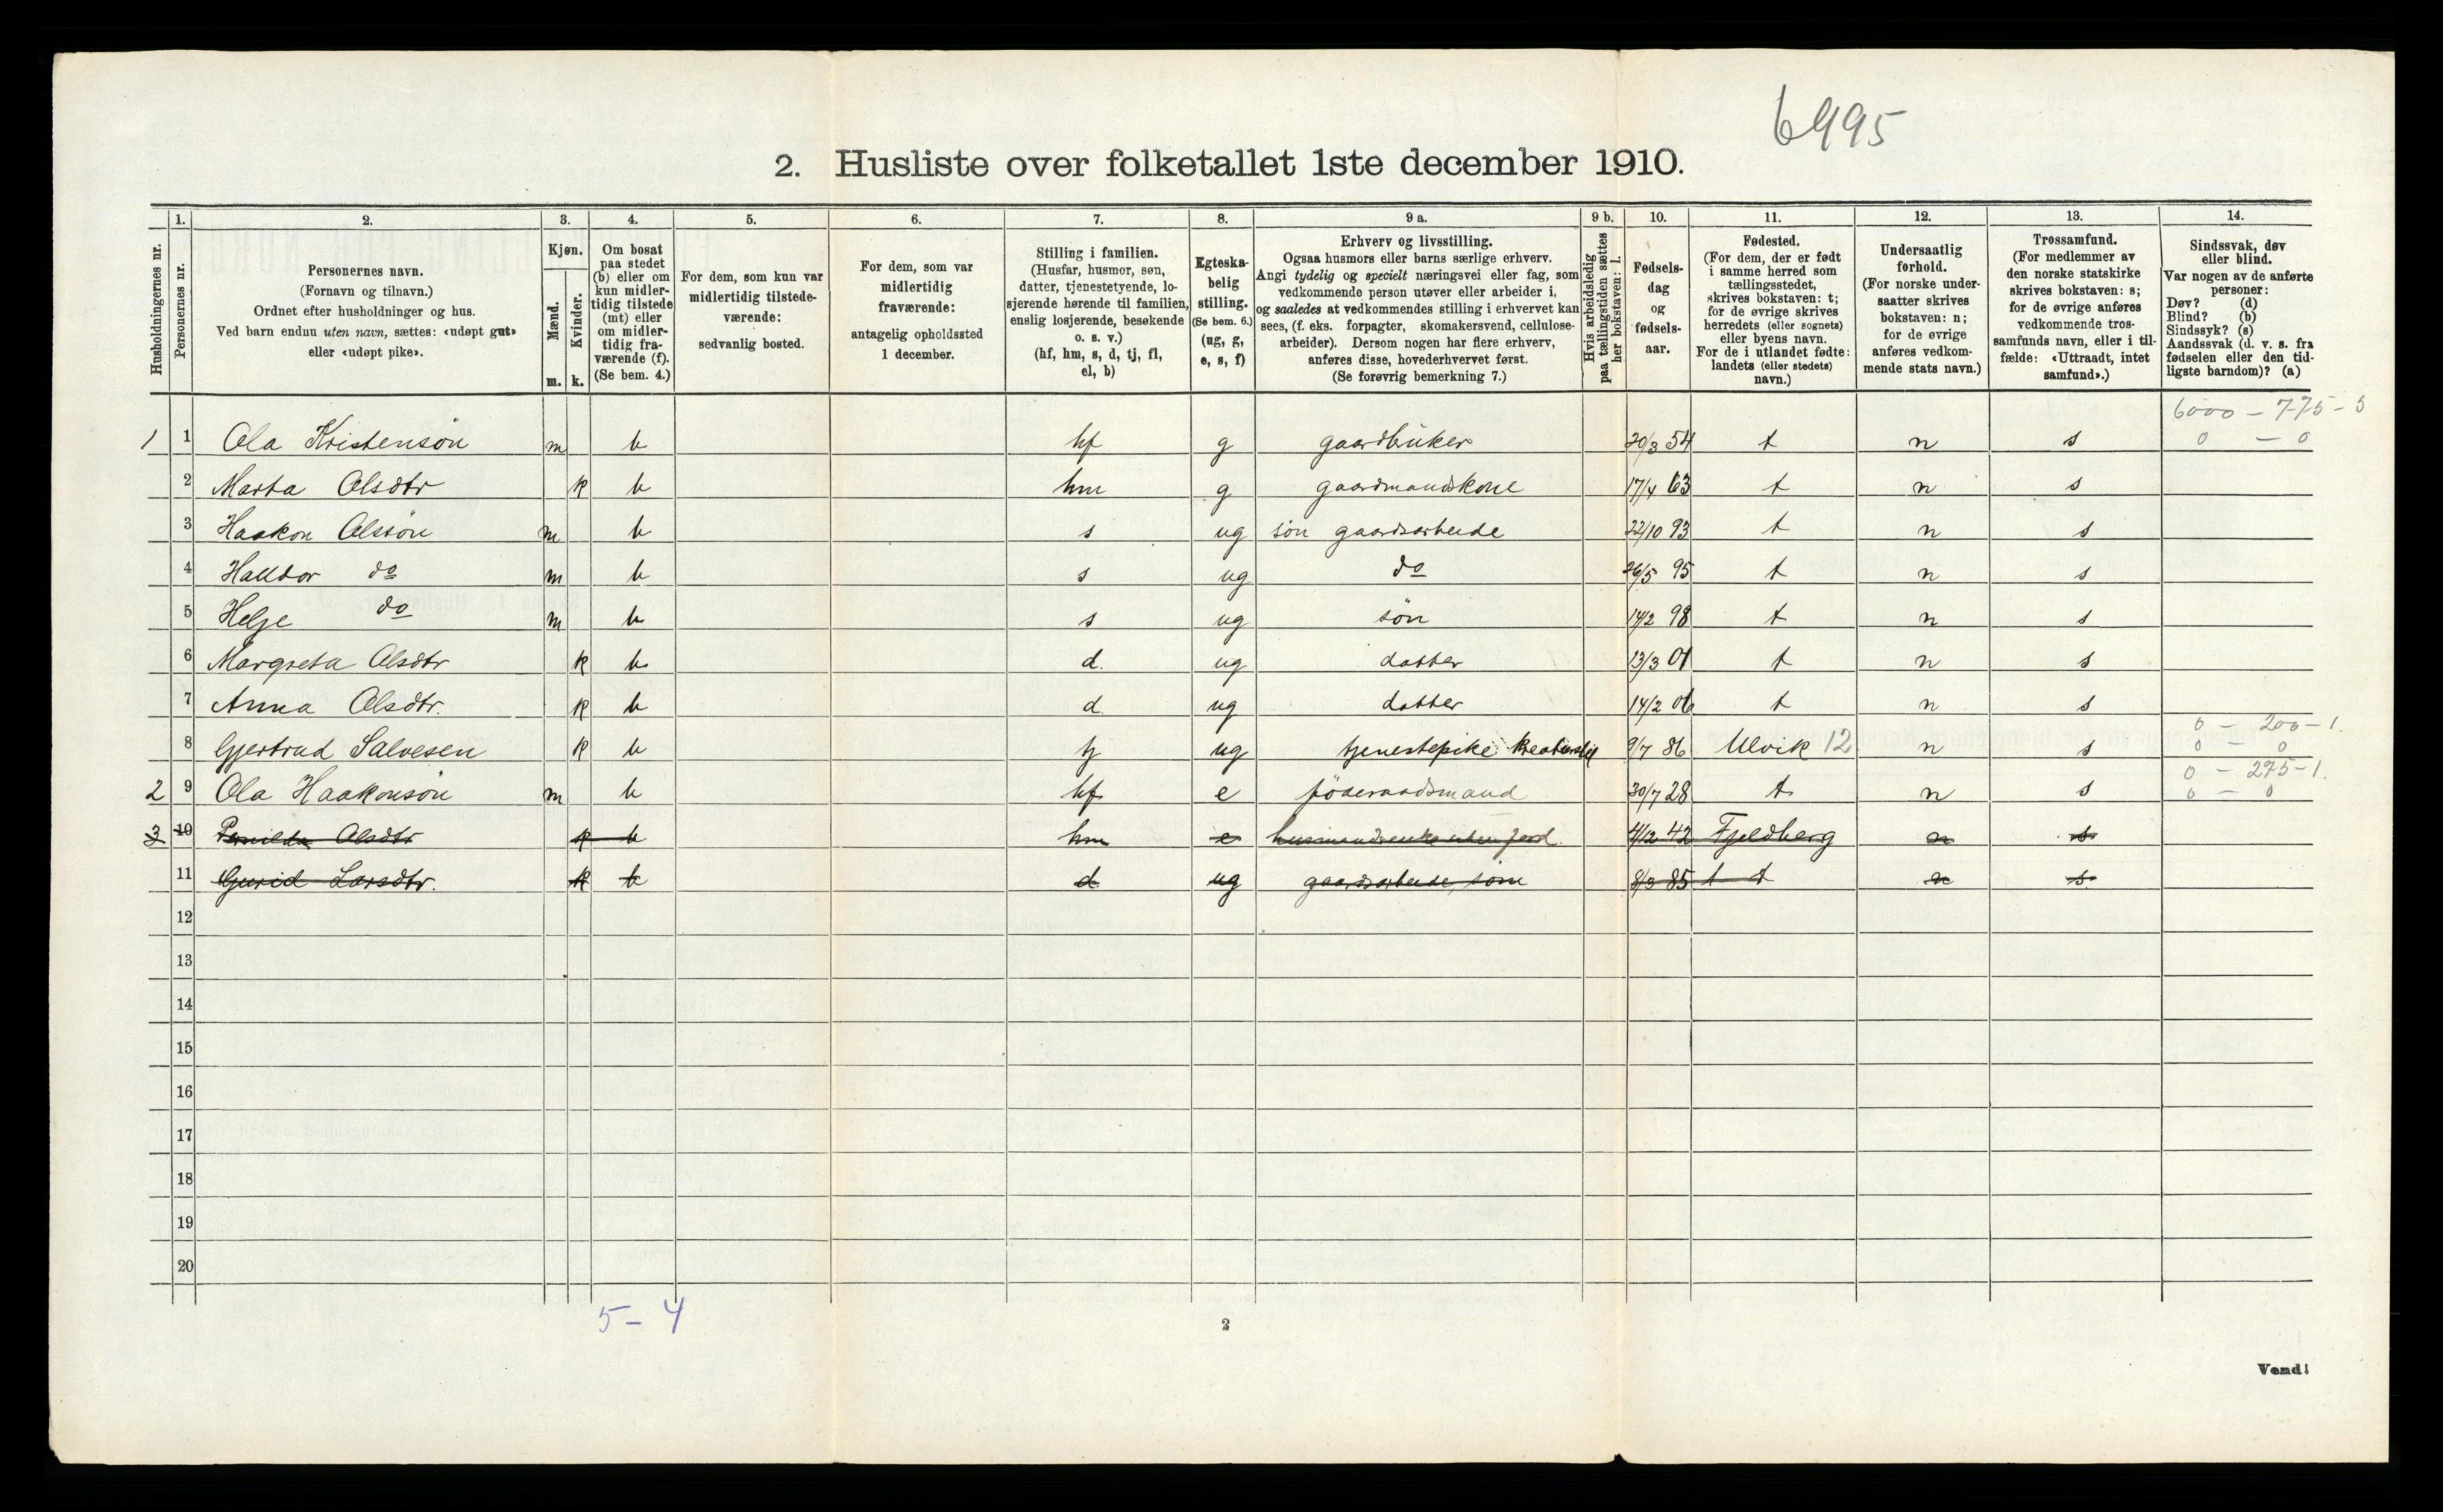 6995
2. Husliste over folketallet 1ste december 1910.
Husholdningernes nr.
1. Personernes nr.
2. Personernes navn.
(Fornavn og tilnavn.)
Ordnet efter husholdninger og hus.
Ved barn endnu uten navn, sættes: «udøpt gut»
eller «udøpt pike».
3. Kjøn.
Mænd. Kvinder.
m. k.
4. Om bosat
paa stedet
(b) eller om
kun midler-
tidig tilstede
(mt) eller
om midler-
tidig fra-
værende (f).
(Se bem. 4.)
5. For dem, som kun var
midlertidig tilstede-
værende:
sedvanlig bosted.
6. For dem, som var
midlertidig
fraværende:
antagelig opholdssted
1 december.
7. Stilling i familien.
(Husfar, husmor, søn,
datter, tjenestetyende, lo-
sjerende hørende til familien,
enslig losjerende, besøkende
o. s. v.)
(hf, hm, s, d, tj, fl,
el, b)
8. Egteska-
belig
stilling.
(Se bem. 6.)
(ug, g,
e, s, f)
9 a. Erhverv og livsstilling.
Ogsaa husmors eller barns særlige erhverv.
Angi tydelig og specielt næringsvei eller fag, som
vedkommende person utøver eller arbeider i,
og saaledes at vedkommendes stilling i erhvervet kan
sees, (f. eks. forpagter, skomakersvend, cellulose-
arbeider). Dersom nogen har flere erhverv,
anføres disse, hovederhvervet først.
(Se forøvrig bemerkning 7.)
9 b. Hvis arbeidsledig
paa tællingstiden sættes
her bokstaven: l.
10. Fødsels-
dag
og
fødsels-
aar.
11. Fødested.
(For dem, der er født
i samme herred som
tællingsstedet,
skrives bokstaven: t;
for de øvrige skrives
herredets (eller sognets)
eller byens navn.
For de i utlandet fødte:
landets (eller stedets)
navn.)
12. Undersaatlig
forhold.
(For norske under-
saatter skrives
bokstaven: n;
for de øvrige
anføres vedkom-
mende stats navn.)
13. Trossamfund.
(For medlemmer av
den norske statskirke
skrives bokstaven: s;
for de øvrige anføres
vedkommende tros-
samfunds navn, eller i til-
fælde: «Uttraadt, intet
samfund».)
14. Sindssvak, døv
eller blind.
Var nogen av de anførte
personer:
Døv? (d)
Blind? (b)
Sindssyk? (s)
Aandssvak (d. v. s. fra
fødselen eller den tid-
ligste barndom)? (a)
6000 - 775 - 5
1 1 Ola Kristensön m b hf g gaardbruker 20/3 54 t n s 0 - 0
2 Marta Olsdtr k b hm g gaardmandskone 17/4 63 t n s
3 Haakon Olssön m b s ug sön gaardsarbeide 22/10 93 t n s
4 Halldor do m b s ug do 26/5 95 t n s
5 Helge do m b s ug sön 14/2 98 t n s
6 Margreta Olsdtr k b d. ug datter 13/3 01 t n s
7 Anna Olsdtr. k b d. ug datter 14/2 06 t n s
0 - 200 - 1.
8 Gjertrud Salvesen k b tj ug tjenestepike kreaturstel 9/7 86 Ulvik 12 n s 0 - 0
0 - 275 - 1.
2 9 Ola Haakonsön m b hf e föderaadsmand 30/7 28 t n s 0 - 0
3 10 Pernilda Olsdtr k b hm e husmandsenke uten jord. 4/12 42 Fjeldberg n s
11 Gurid Larsdtr. k b d ug gaardsarbeide, söm 8/3 85 t t n s
12
13
14
15
16
17
18
19
20
5 - 4
2
Vend!